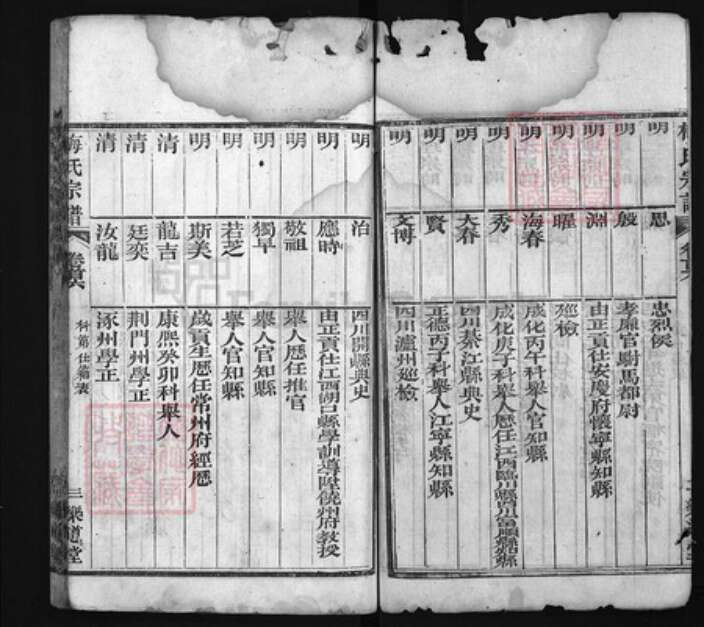 梅氏宗譜
明 思 忠烈侯
明 殷 孝廉官尉馬都尉
明 淵 由正貢任安慶府懷寧縣知縣
明 暒 巡檢
明 海春 成化丙午科舉人官知縣
明 秀 成化庚子科舉人歷任江西臨川縣四川富順縣知縣
明 大春 四川綦江縣典史
明 賢 正德丙子科舉人江寧縣知縣
明 文博 四川瀘州巡檢
明 治 四川開縣典史
明 應時 由正貢任江西湖口縣學訓導陞饒州府教授
明 敬祖 舉人歷任推官
明 獨早 舉人官知縣
明 若芝 舉人官知縣
明 斯美 歲貢生歷任常州府經歷
清 龍吉 康熈癸卯科舉人
清 廷奕 荆門州學正
清 汝龍 涿州學正
梅氏宗譜 卷首六 科第仕籍表 三樂道堂